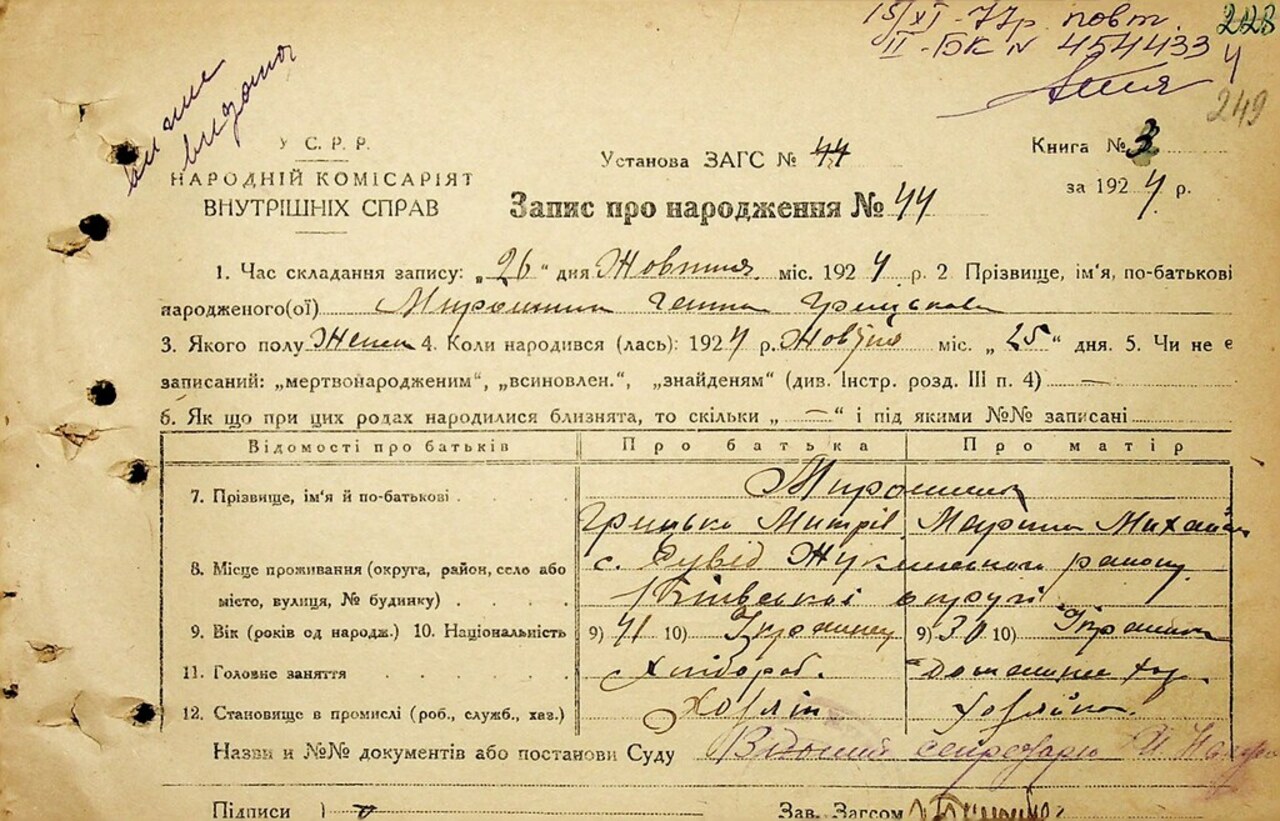 15/XI-77р. повт.
II-БК № 454433
228
249
У С. Р. Р.
НАРОДНІЙ КОМІСАРІЯТ
ВНУТРІШНІХ СПРАВ
Установа ЗАГС № 44
Книга № 3
за 1924 р.
Запис про народження № 44
1. Час складання запису: „26“ дня Жовтня міс. 1924 р. 2 Прізвище, ім'я, по-батькові
народженого(ої) Мирошник Ганна Грицькова
3. Якого полу Женск 4. Коли народився (лась): 1924 р. Жовтня міс. „25“ дня. 5. Чи не є
записаний: „мертвонародженим“, „всиновлен.“, „знайденям“ (див. Інстр. розд. III п. 4) —
6. Як що при цих родах народилися близнята, то скільки „—“ і під якими №№ записані
Відомості про батьків Про батька Про матір
7. Прізвище, ім'я й по-батькові Мирошник
Грицько Митрів Марина Михайл
8. Місце проживання (округа, район, село або с. Сувід району
місто, вулиця, № будинку) Київської округи
9. Вік (років од народж.) 10. Національність 9) 41 10) Українец 9) 30 10) Українка
11. Головне заняття Хлібороб. Домашнє
12. Становище в промислі (роб., служб., хаз.) Хазяїн Хазяйка.
Назви и №№ документів або постанови Суду секретарь
Підписи Зав. Загсом